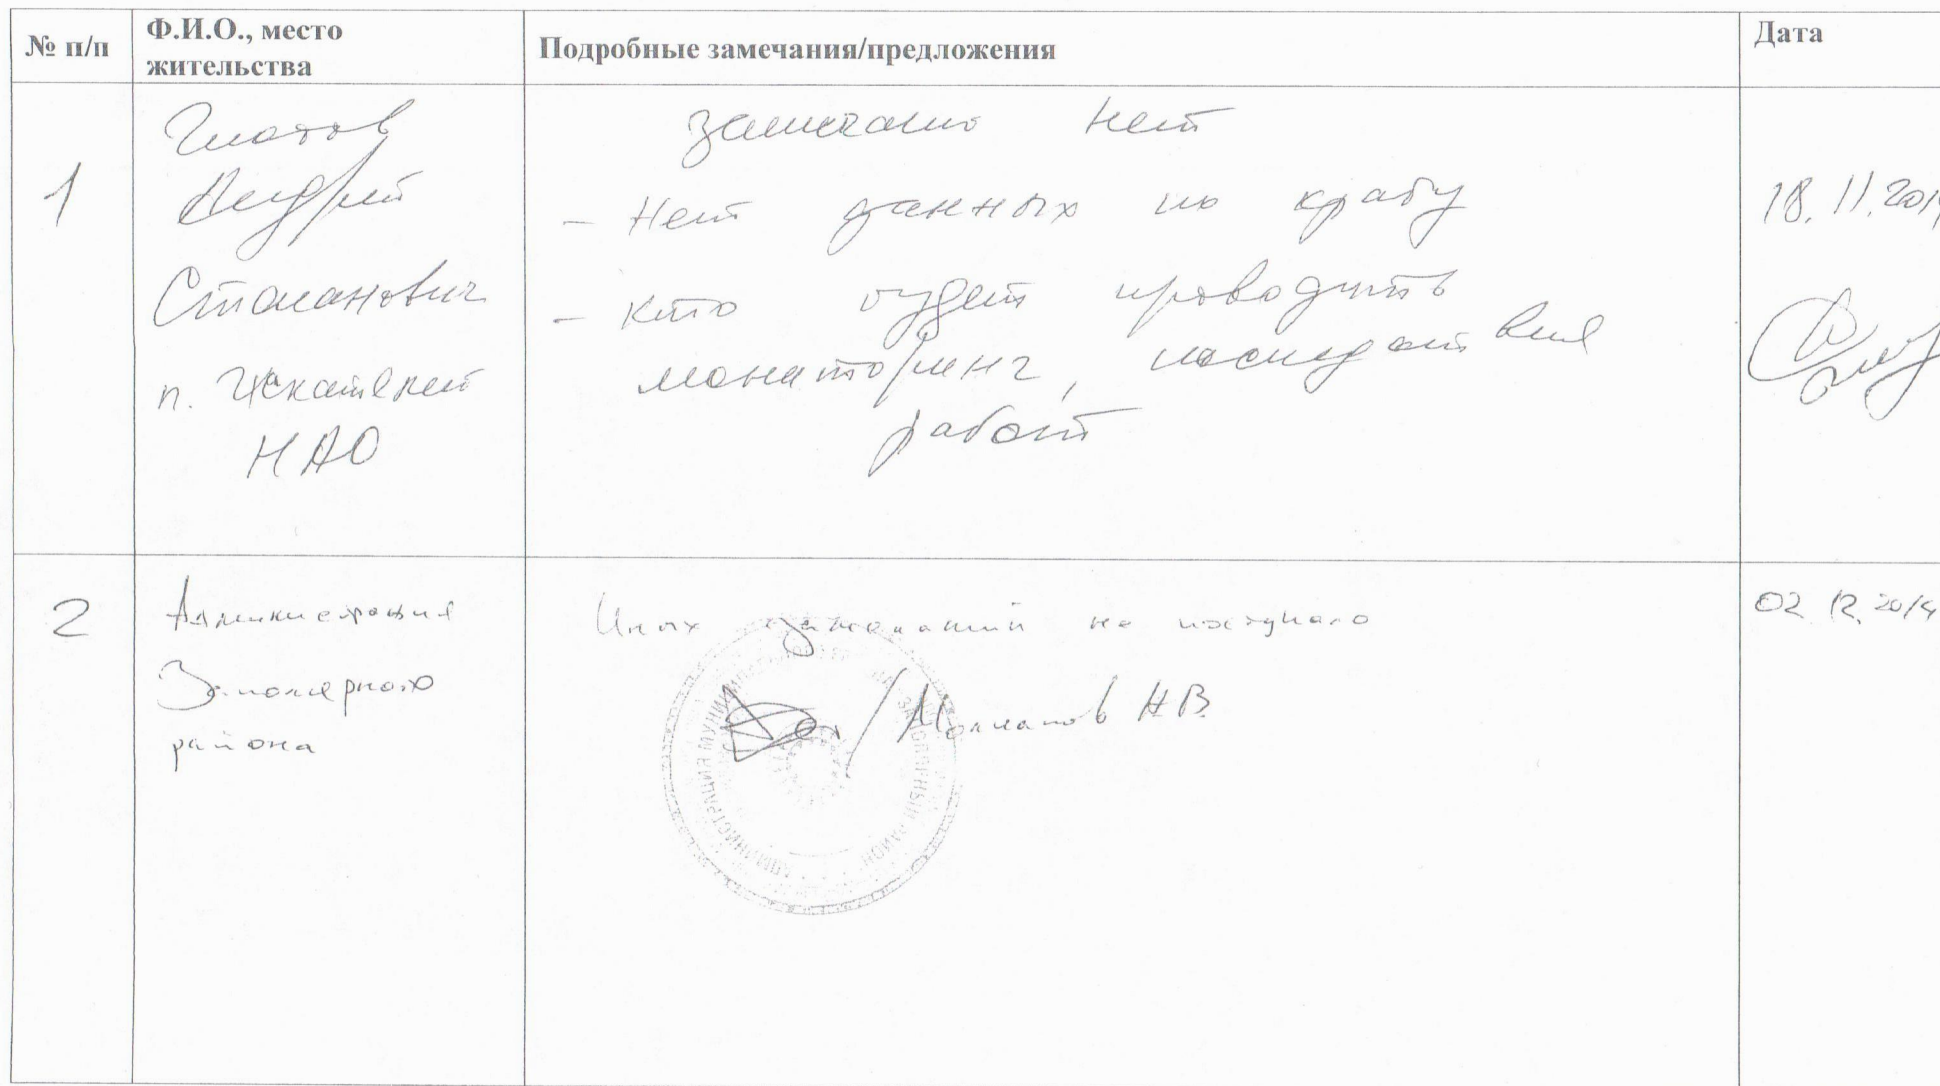 № п/п
Ф.И.О., место
жительства
Подробные замечания/предложения
Дата
1
Андрей
п. Искателей
НАО
замечаний нет
- Нет данных по крабу
- кто будет проводить
мониторинг, последствия
работ
18.11.201
2
Администрация
Заполярного
района
Иных замечаний не поступало
Н.В.
АДМИНИСТРАЦИЯ ЗАПОЛЯРНЫЙ РАЙОН
02.12.2014